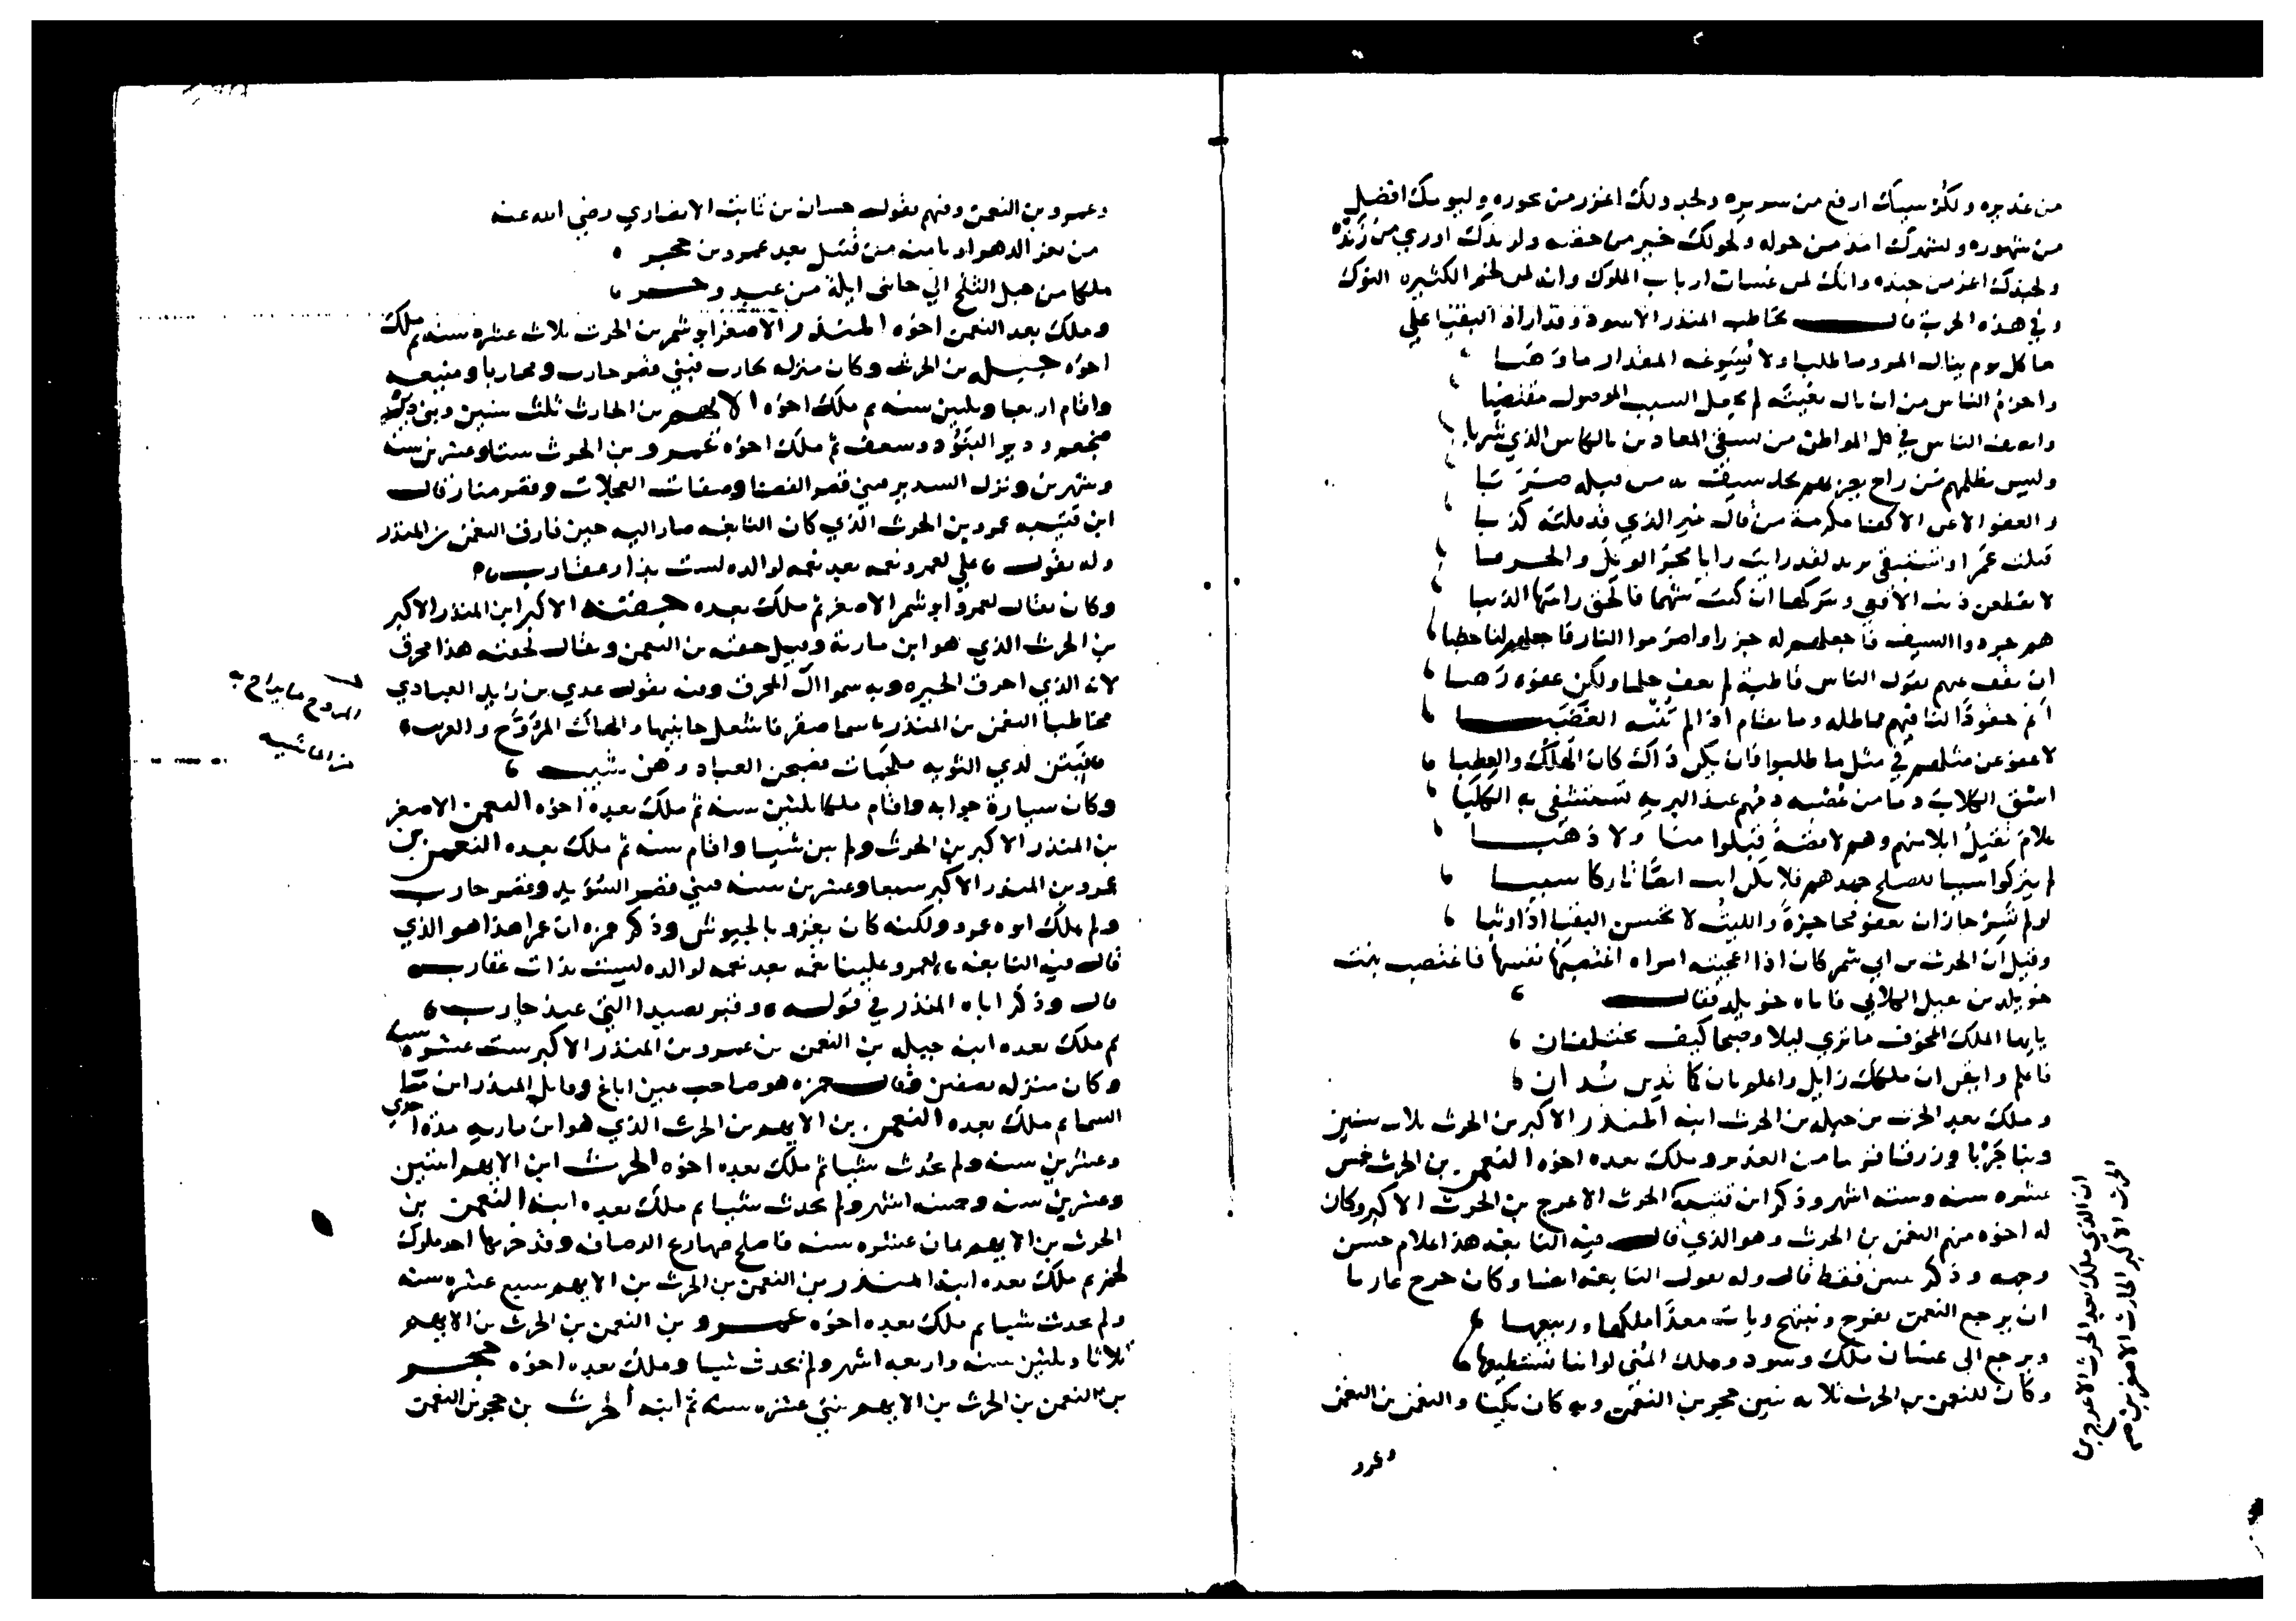 من غديره ولكرسيك ارفع من سريره ولجدولك اغزر من بحوره وليومك افضل
من شهوره ولشهرك امد من حوله ولحولك خير من حقبه ولزندك اوري من زنده
ولجندك اعز من جنده وانك لمن غسان ارباب الملوك وانه لمن لخم الكثيره النوك
وفي هذه الحرب قال يخاطب المنذر الاسود وقد اراد البقيا علي
ما كل يوم ينال المرء ما طلبا ولا يسوغه المقدار ما وهبا
واحزم الناس من ان نال بغيته لم يجعل السبب الموصول مقتضبا
وانصف الناس في كل المواطن من سقى المعادين بالكاس الذي شربا
وليس يظلمهم من راح يضربهم بحد سيف به من قبله ضربا
والعفو الا عن الاكفا مكرمة من قال غير الذي قد قلته كذبا
قتلت عمرا وتستبقي يزيد لقد رايت رايا يجر الويل والحربا
لا تقطعن ذنب الافعى وتتركها ان كنت شهما فالحق راسها الذنبا
هم جردوا السيف فاجعلهم له جزرا واضرموا النار فاجعلهم لها حطبا
ان تعف عنهم يقول الناس قاطبة لم يعف حلما ولكن عفوه رهبا
لا عفو عن مثلهم في مثل ما طلبوا فان يكن ذاك كان الهلك والعطبا
علام تقبل ابلا منهم وهم لا فضة قبلوا منا ولا ذهبا
لم يتركوا سببا للصلح جهدهم فلا تكن انت ايضا تاركا سببا
وقيل ان الحرث بن ابي شمر كان اذا اعجبته امراه اغتصبها نفسها فاغتصب بنت
خويلد بن نفيل الكلابي فاتاه خويلد فقال
يايها الملك المخوف ما تري ليلا وصبحا كيف يختلفان
فاعلم وايقن ان ملكك زايل واعلم بان كما تدين تدان
وملك بعد الحرث بن جبله بن الحرث ابنه المنذر الاكبر بن الحرث ثلاث سنين
وبنا حربا وزرقا قريبا من الغدير وملك بعده اخوه النعمن بن الحرث خمس
عشره سنه وستة اشهر وذكر ابن قتيبة الحرث الاعرج بن الحرث الاكبر وكان
له اخوه منهم النعمن بن الحرث وهو الذي قال فيه النابغه هذا غلام حسن
وجهه وذكر بيتين فقط قال وله يقول النابغه ايضا وكان خرج غازيا
ان يرجع النعمن نفرح ونبتهج ويات معدا ملكها وربيعها
ويرجع الى غسان ملك وسودد وملك المنى لو اننا نستطيعها
وكان للنعمن بن الحرث ثلاثه بنين حجر بن النعمن وبه كان يكنا والنعمن بن النعمن
وعمرو
ان الذي ملك بعد الحرث الاعرج بن
الحرث الاكبر الحارث الاصغر بن
وعمرو بن النعمن وفيهم يقول حسان بن ثابت الانصاري رضي الله عنه
من يغر الدهر او يامنه من قتيل بعد عمرو بن حجر
ملكا من جبل الثلج الي جانبي ايلة من عبد وحر
وملك بعد النعمن اخوه المنذر الاصغر ابو شمر بن الحرث ثلاث عشره سنه ثم ملك
اخوه جبله بن الحرث وكان منزله بحارب فبني قصر حارب ومحاربا ومنيعه
واقام اربعا وثلثين سنه ثم ملك اخوه الايهم بن الحارث ثلث سنين وبنى دير
ضخم ودير النبوه وسعف ثم ملك اخوه عمرو بن الحرث ستا وعشرين سنه
وشهرين ونزل السدير فبنى قصر الفضا وصفات العجلات وقصر منار قال
ابن قتيبه عمرو بن الحرث الذي كان النابغه صار اليه حين فارق النعمن بن المنذر
وله يقول علي لعمرو نعمه بعد نعمه لوالده ليست بذات عقارب
وكان يقال لعمرو ابو شمر الاصغر ثم ملك بعده جفنه الاكبر ابن المنذر الاكبر
بن الحرث الذي هو ابن مارية وقيل جفنه بن النعمن ويقال لجفنه هذا محرق
لانه الذي احرق الحيره وبه سموا ال المحرق وفيه يقول عدي بن زايد العبادي
مخاطبا النعمن بن المنذر
المروح ما يراح به
من الماشيه
وكان سيارة جوابه واقام ملكا ثلثين سنه ثم ملك بعده اخوه النعمن الاصغر
بن المنذر الاكبر بن الحرث ولم يبن شيا واقام سنه ثم ملك بعده النعمن بن
عمرو بن المنذر الاكبر سبعا وعشرين سنه فبني قصر السويد وقصر حارب
ولم يملك ابوه عمرو ولكنه كان يغزو بالجيوش وذكر حمزه ان عمرا هذا هو الذي
قال فيه النابغه لعمرو علينا نعمه بعد نعمه لوالده ليست بذات عقارب
قال وذكر اباه المنذر في قوله وقبر بصيدا التي عند حارب
ثم ملك بعده ابنه جبله بن النعمن بن عمرو بن المنذر الاكبر ست عشره سنه
وكان منزله بصفين وقال حمزه هو صاحب عين اباغ وقاتل المنذر ابن ما
السما ثم ملك بعده النعمن بن الايهم بن الحرث الذي هو ابن ماريه مدة احدي
وعشرين سنه ولم يحدث شيا ثم ملك بعده اخوه الحرث ابن الايهم اثنتين
وعشرين سنه وخمسه اشهر ولم يحدث شيا ثم ملك بعده ابنه النعمن بن
الحرث بن الايهم ثمان عشره سنه فاصلح صهاريج الرصافه وقد خربها احد ملوك
لخم ثم ملك بعده ابنه المنذر بن النعمن بن الحرث بن الايهم سبع عشره سنه
ولم يحدث شيا ثم ملك بعده اخوه عمرو بن النعمن بن الحرث بن الايهم
ثلاثا وثلثين سنه واربعه اشهر ولم يحدث شيا وملك بعده اخوه حجر
بن النعمن بن الحرث بن الايهم ثنتي عشره سنه ثم ابنه الحرث بن حجر بن النعمن